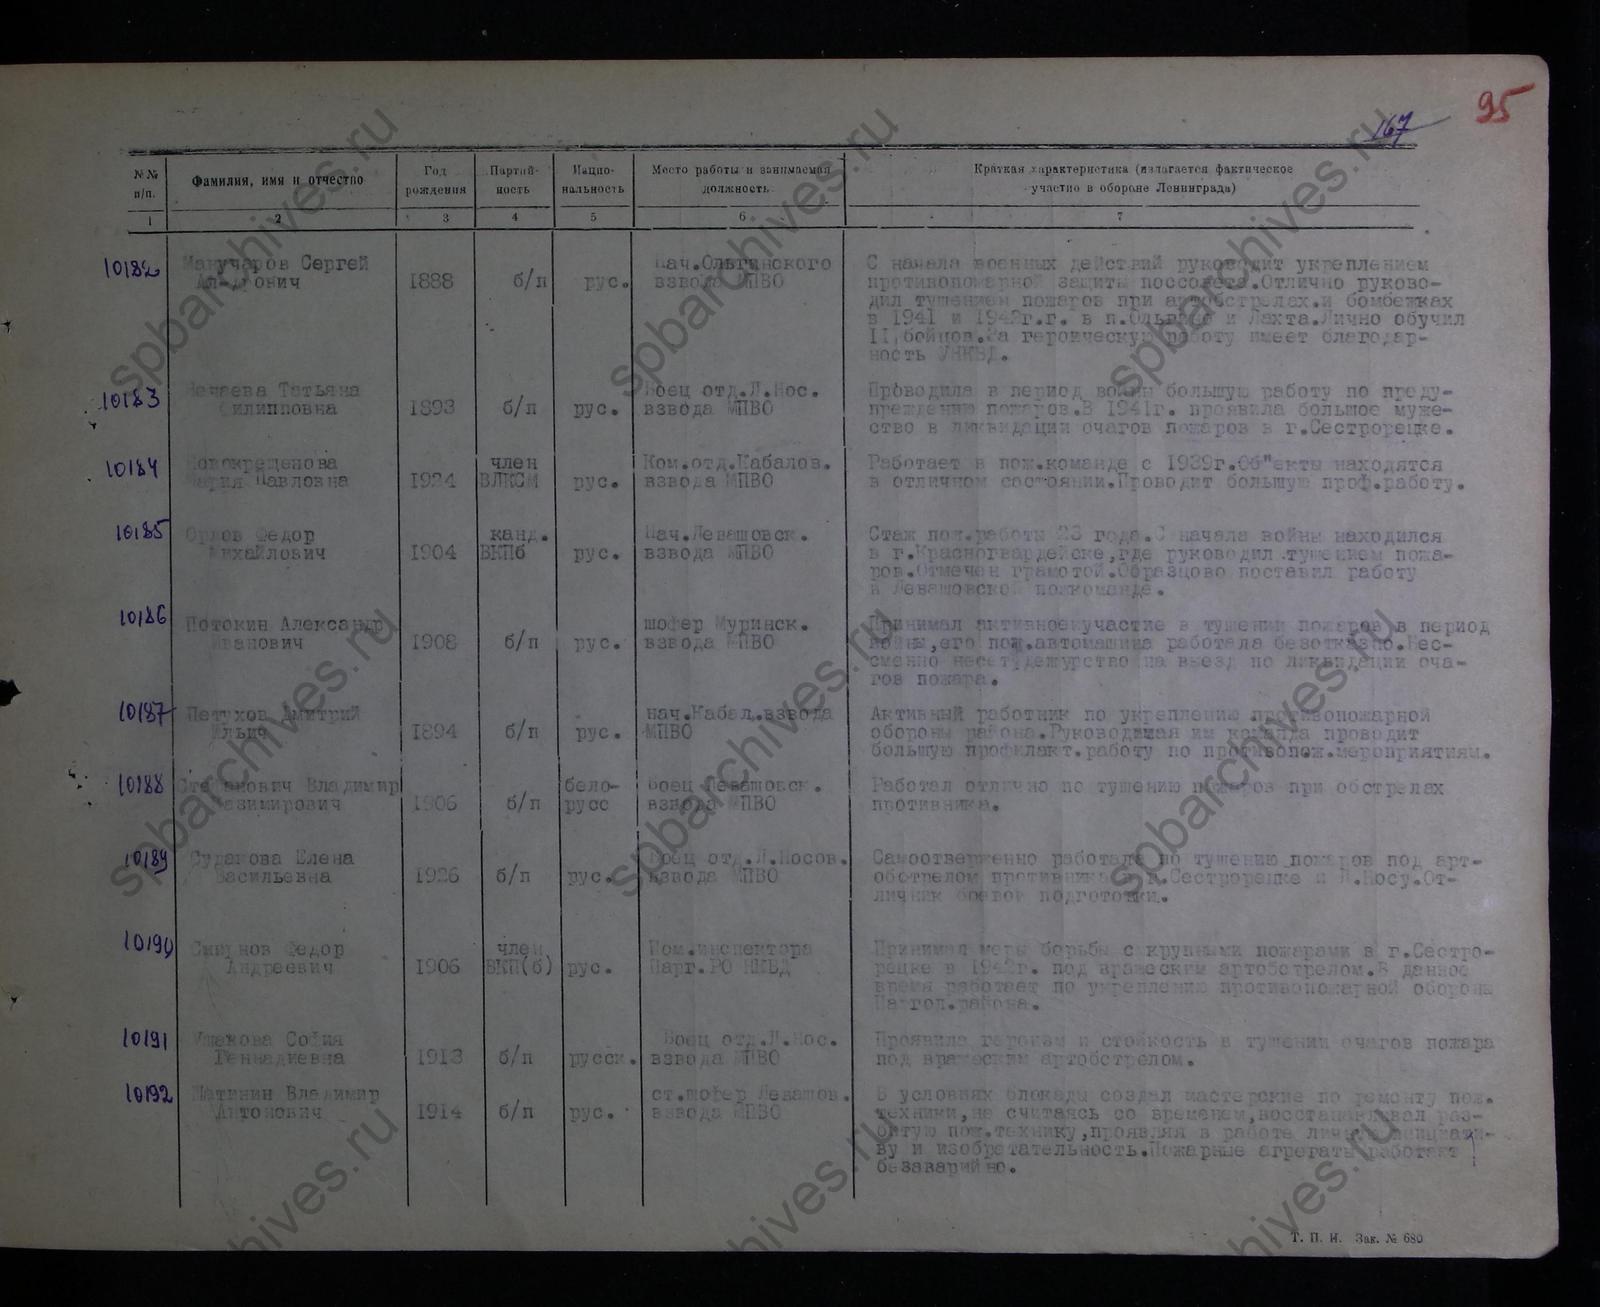 95
167
№№ п/п.
Фамилия, имя и отчество
Год рождения
Партий-ность
Нацио-нальность
Место работы и занимаемая должность
Краткая характеристика (излагается фактическое участие в обороне Ленинграда)
1 2 3 4 5 6 7
10182 Сергей 1888 б/п рус. Нач.Ольгинского взвода МПВО
С начала военных действий руководит укреплением
противопожарной защиты поссовета.Отлично руково-
дил тушением пожаров при артобстрелах.и бомбежках
в 1941 и 1942г.г. в п.Ольгино и Лахта.Лично обучил
II бойцов.За героическую работу имеет благодар-
ность УНКВД.
10183 Татьяна Филипповна 1893 б/п рус. Боец отд.Л.Нос. взвода МПВО
Проводила в период войны большую работу по преду-
преждению пожаров.В 1941г. проявила большое муже-
ство в ликвидации очагов пожаров в г.Сестрорецке.
10184 Новокрещенова Мария Павловна 1924 член ВЛКСМ рус. Ком.отд.Кабалов. взвода МПВО
Работает в пож.команде с 1939г.Об"екты находятся
в отличном состоянии.Проводит большую проф.работу.
10185 Орлов Федор Михайлович 1904 канд. ВКПб рус. Нач.Левашовск. взвода МПВО
Стаж пож.работы 23 года.С начала войны находился
в г.Красногвардейске,где руководил тушением пожа-
ров.Отмечен грамотой.Образцово поставил работу
в Левашовской пожкоманде.
10186 Потокин Александр Иванович 1908 б/п рус. шофер Муринск. взвода МПВО
Принимал активное участие в тушении пожаров в период
войны,его пож.автомашина работала безотказно.Бес-
сменно несет дежурство на выезд по ликвидации оча-
гов пожара.
10187 Петухов Дмитрий Ильич 1894 б/п рус. нач.Кабал.взвода МПВО
Активный работник по укреплению противопожарной
обороны района.Руководимая им команда проводит
большую профилакт.работу по противопож.мероприятиям.
10188 Владимир Казимирович 1906 б/п бело-русс Боец Левашовск. взвода МПВО
Работал отлично по тушению пожаров при обстрелах
противника.
10189 Судакова Елена Васильевна 1926 б/п рус. Боец отд.Л.Носов. взвода МПВО
Самоотверженно работала по тушению пожаров под арт-
обстрелом противника в г.Сестрорецке и Л.Носу.От-
личник боевой подготовки.
10190 Смирнов Федор Андреевич 1906 член ВКП(б) рус. Пом.инспектора Парг.РО НКВД
Принимал меры борьбы с крупными пожарами в г.Сестро-
рецке в 1942г. под вражеским артобстрелом.В данное
время работает по укреплению противопожарной обороны
Паргол.района.
10191 Ушакова София Геннадиевна 1913 б/п русск. Боец отд.Л.Нос. взвода МПВО
Проявила героизм и стойкость в тушении очагов пожара
под вражеским артобстрелом.
10192 Владимир Антонович 1914 б/п рус. ст.шофер Левашов. взвода МПВО
В условиях блокады создал мастерские по ремонту пож.
техники,не считаясь со временем,восстанавливал раз-
битую пож.технику,проявляя в работе личную инициати-
ву и изобретательность.Пожарные агрегаты работают
безаварийно.
Т. П. И. Зак. № 680
spbarchives.ru